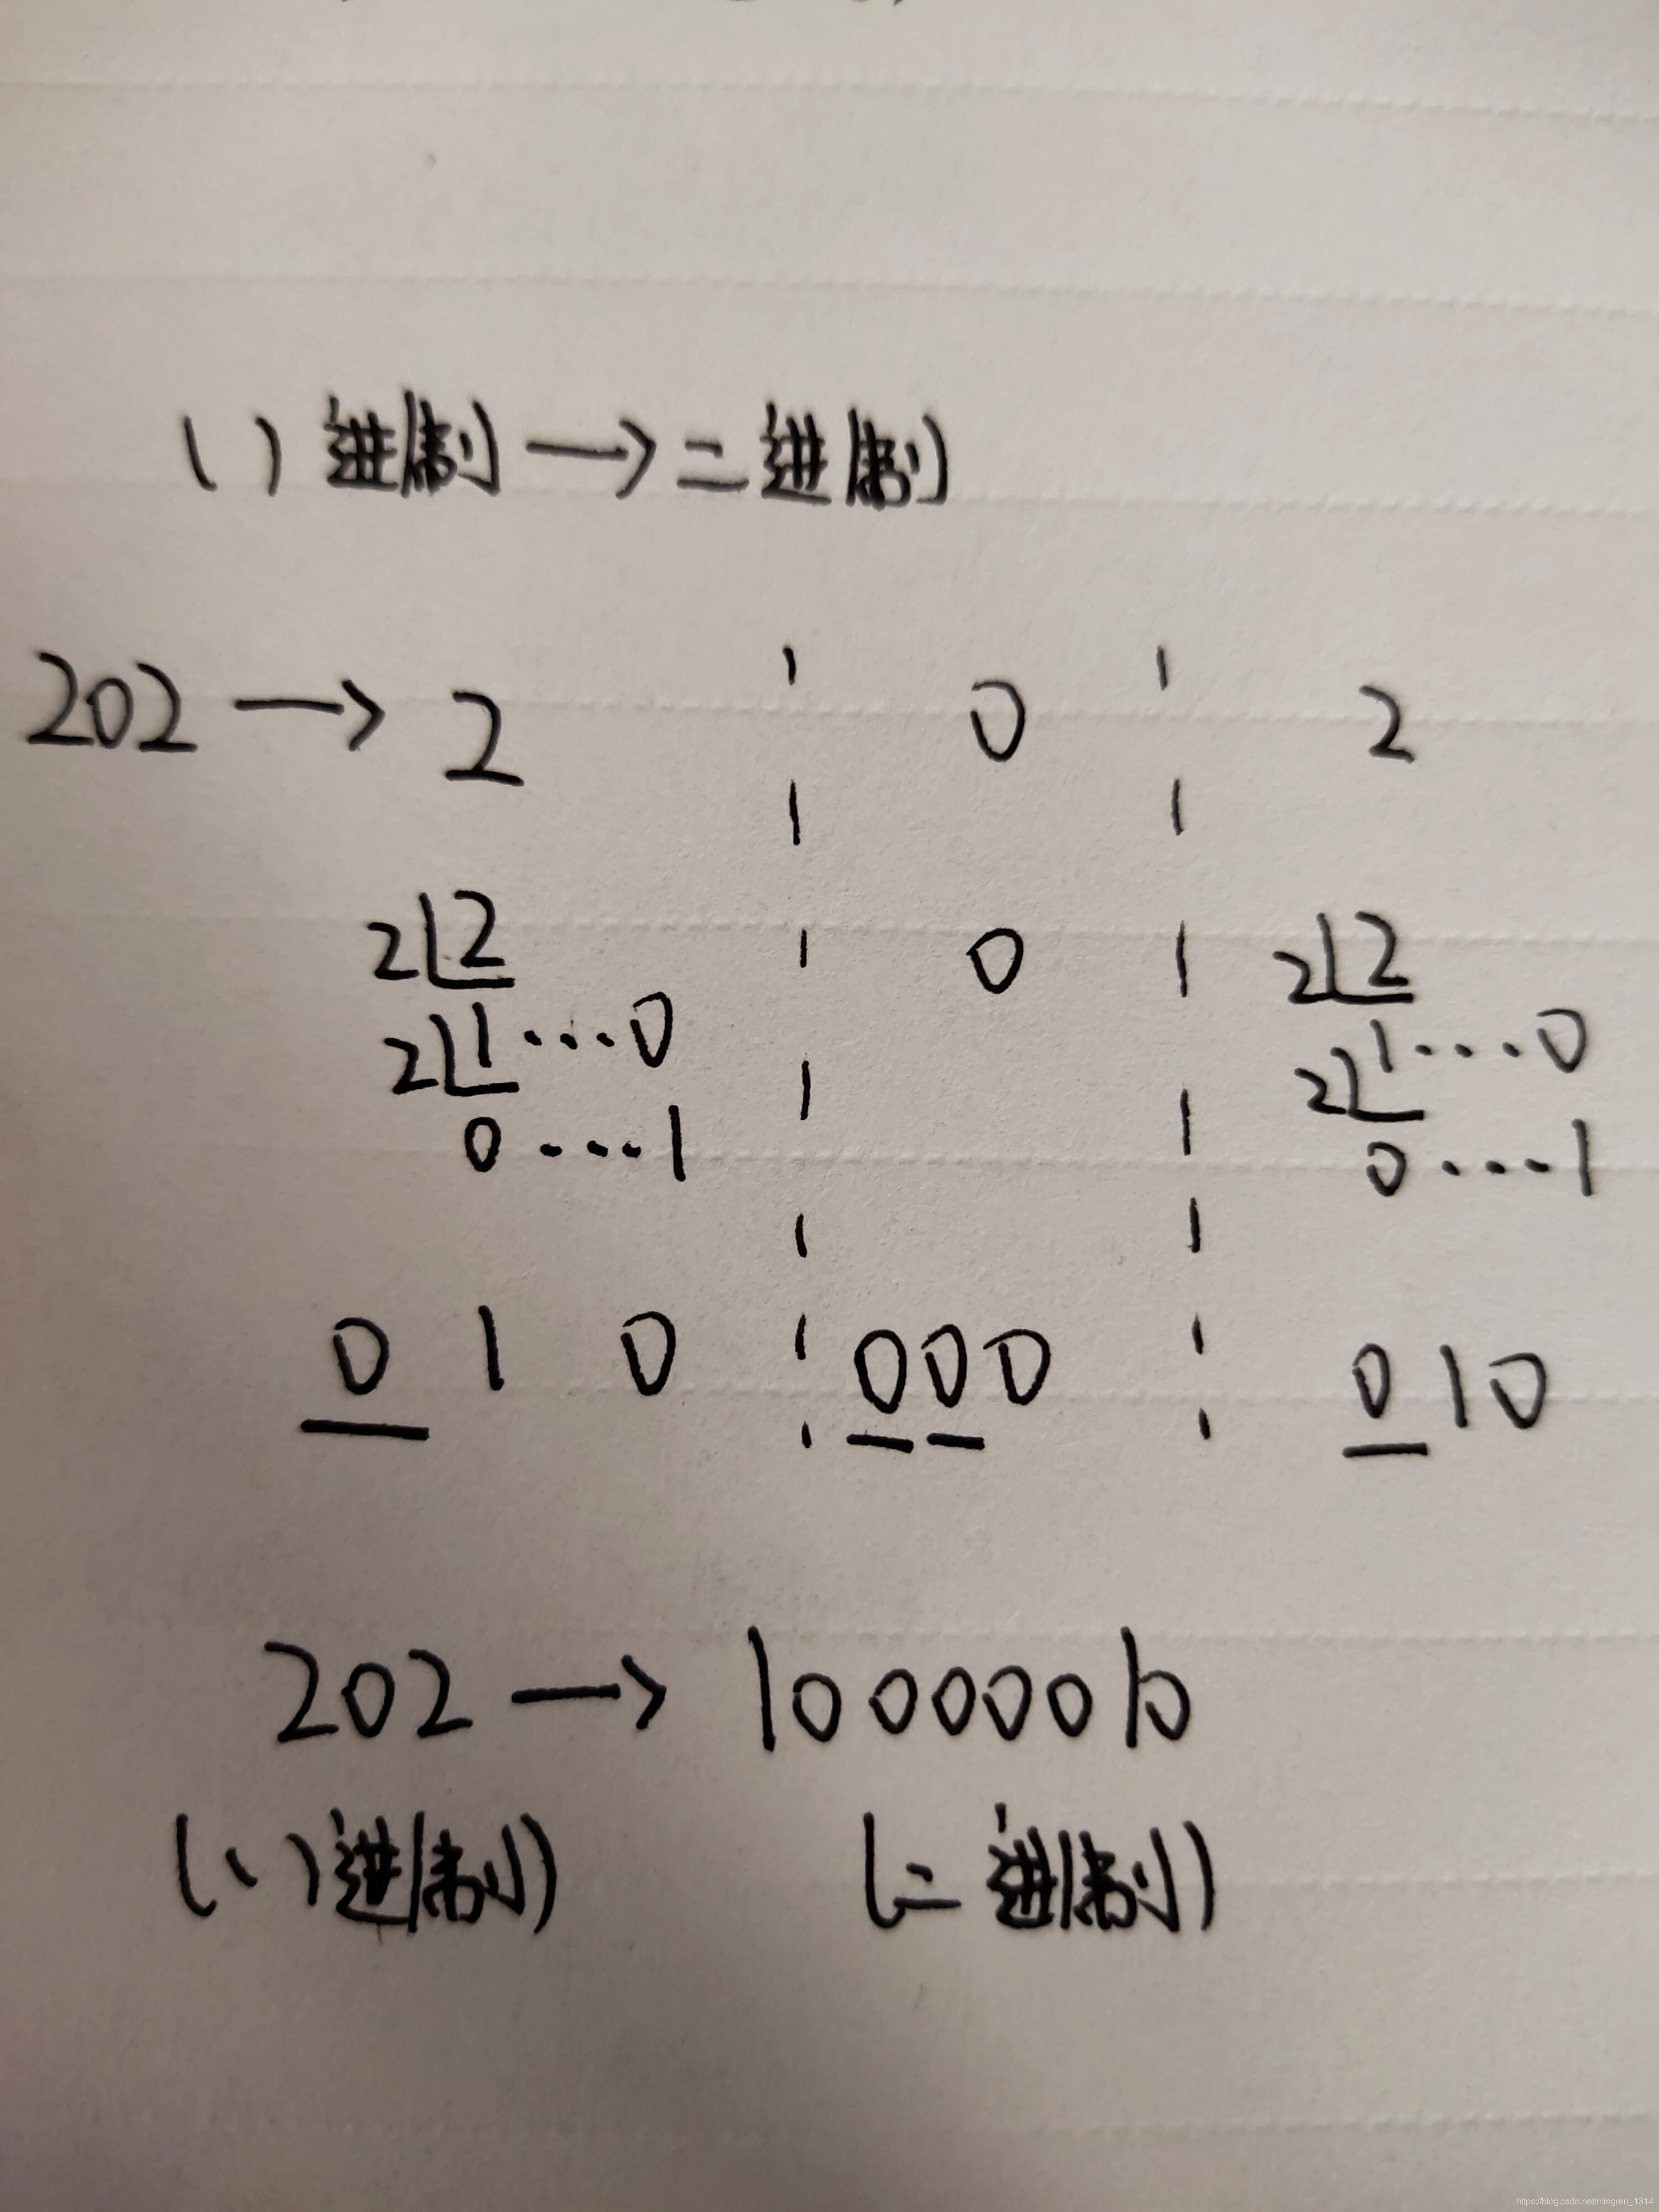 八进制→二进制
202→2 0 2
2 2 0 2 2
2 1…0 2 1…0
0…1 0…1
0 1 0 000 010
202→10000010
(八进制) (二进制)
https://blog.csdn.net/mingren_1314